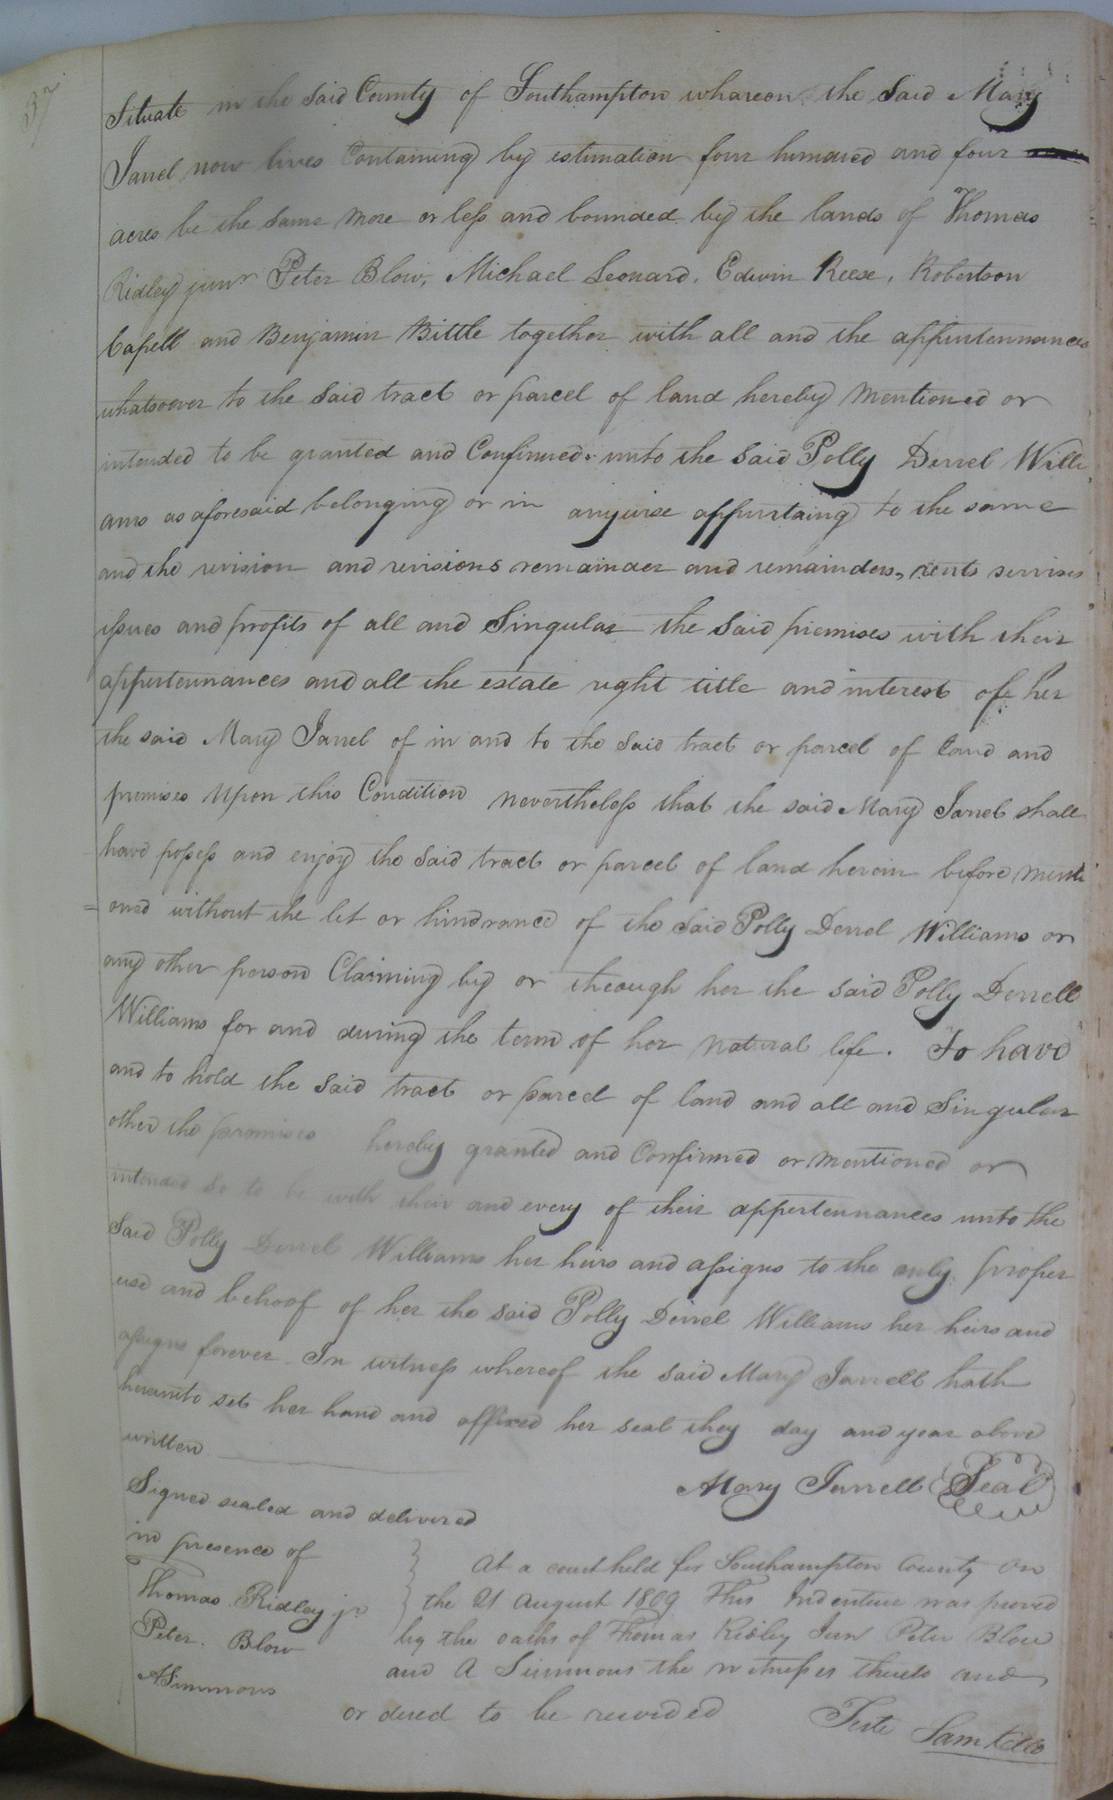 37
Situate in the said County of Southampton whareon the said Mary
Jarrel now lives Containing by estimation four hundred and four
acres be the same more or less and bounded by the lands of Thomas
Ridley junr Peter Blow, Michael Leonard, Edwin Reese, Robertson
Capell and Benjamin Bittle together with all and the appurtennances
whatsoever to the said tract or parcel of land hereby mentioned or
intended to be granted and Confirmed unto the said Polly Derrel Willi
ams as aforesaid belonging or in anywise appurtaing to the same
and the revision and revisions remainder and remainders, rents servises
issues and profits of all and Singular the said premises with their
appurtennances and all the estate right title and interest of her
the said Mary Jarrel of in and to the said tract or parcel of land and
premises Upon this Condition nevertheless that the said Mary Jarrel shall
have possess and enjoy the said tract or parcel of land herein before menti
oned without the let or hindrance of the said Polly Derrel Williams or
any other person Claiming by or through her the said Polly Derrell
Williams for and during the term of her natural life. To have
and to hold the said tract or parcel of land and all and Singular
other the premises hereby granted and Confirmed or mentioned or
intended so to be with their and every of their appertennances unto the
said Polly Derrel Williams her heirs and assigns to the only proper
use and behoof of her the said Polly Derrel Williams her heirs and
assigns forever. In witness whereof the said Mary Jarrell hath
hereunto set her hand and affixed her seal they day and year above
written
Mary Jarrell Seal
Signed sealed and delivered
in presence of
Thomas Ridley jr
Peter. Blow
A Simmons
At a court held for Southampton County on
the 21 August 1809 This Indenture was proved
by the oaths of Thomas Ridley Jun Peter Blow
and A Simmons the witnesses thereto and
ordered to be recorded
Teste Sam Kello